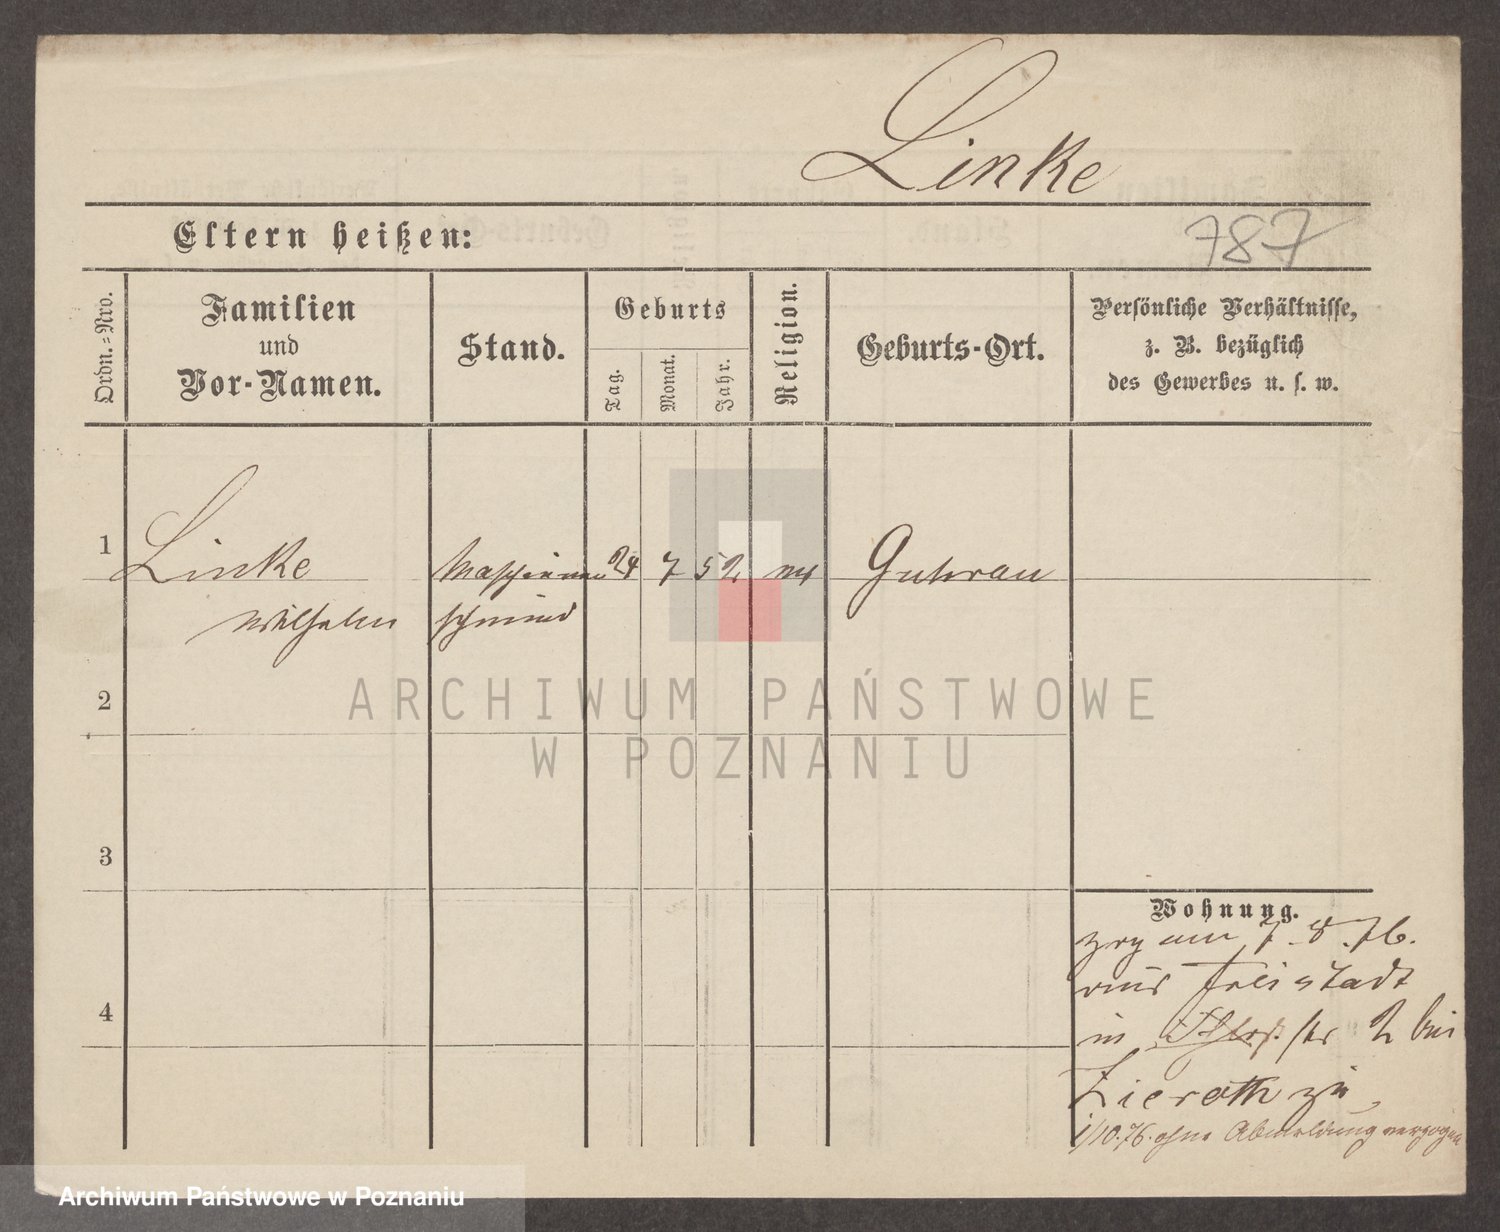 Linke
Eltern heißen:
787
Ordn.=Nro.
Familien
und
Vor-Namen.
Stand.
Geburts
Tag.
Monat.
Jahr.
Religion.
Geburts-Ort.
Persönliche Verhältnisse,
z. B. bezüglich
des Gewerbes u. s. w.
1
Linke
Maschinen
24
7
52
Guhrau
Wilhelm
schmied
2
ARCHIWUM PAŃSTWOWE
W POZNANIU
3
Wohnung.
zog am 7.8.76.
aus Freistadt
in str 2 bei
Zieroth zu
1/10.76. ohne Abmeldung verzogen
4
Archiwum Państwowe w Poznaniu